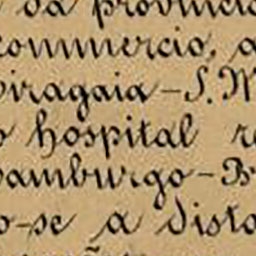 da provincia
commercio, a
piragaia – S. M
hospital re
amburgo – B
o-se a disto